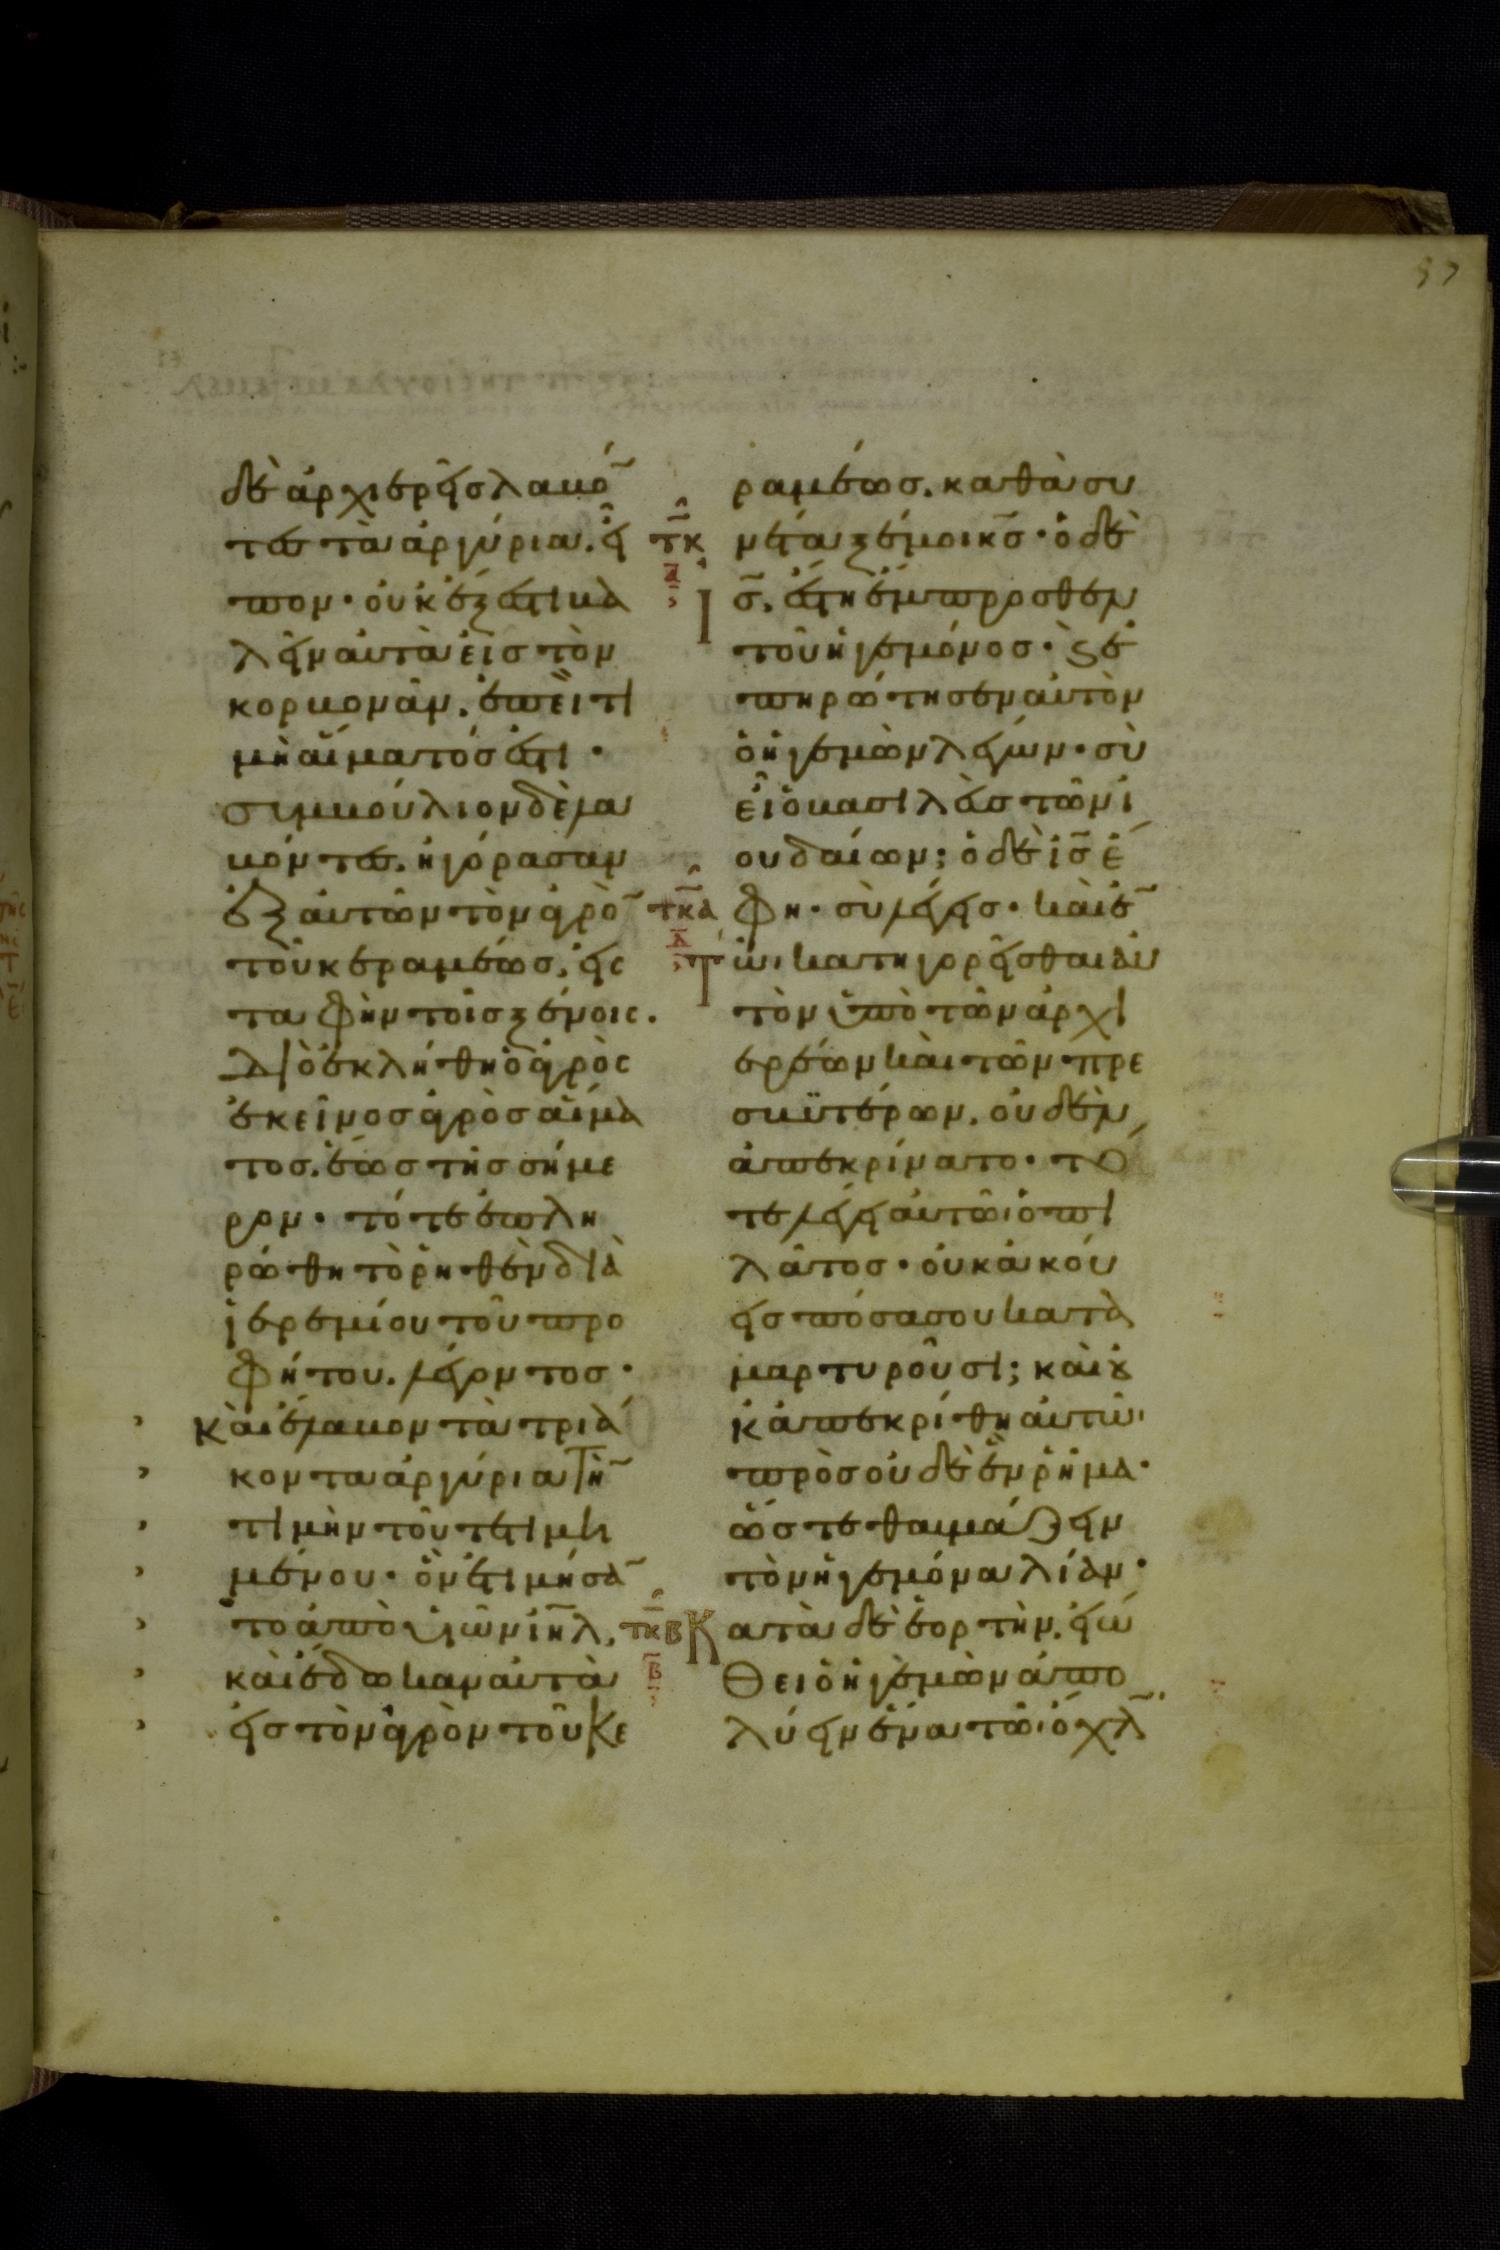 57
δὲ ἀρχιερεῖς λαβό̃
τες τὰ ἀργύρια. εἶ
πον· οὐκ ἔξεστι βα
λεῖν αὐτὰ εἰς τὸν
κορβονᾶν. ἐπεὶ τι
μὴ αἵματός ἐστι·
συμβούλιον δὲ λα
βόντες. ἠγόρασαν
ἐξ αὐτῶν τὸν ἀγρὸ̃
τοῦ κεραμέως. εἰς
ταφὴν τοῖς ξένοις.
Διὸ ἐκλήθη ὁ ἀγρὸς
ἐκεῖνος ἀγρὸς αἵμα
τος. ἕως τῆς σήμε
ρον· τότε ἐπλη
ρώθη τὸ ῥηθὲν διὰ
ἱερεμίου τοῦ προ
φήτου. λέγοντος·
Καὶ ἔλαβον τὰ τριά
κοντα ἀργύρια τὴ̃
τιμὴν τοῦ τετιμη
μένου· ὃν ἐτιμήσα̃
το ἀπὸ υἱῶν ιη̅λ.
καὶ ἔδωκαν αὐτὰ
εἰς τὸν ἀγρὸν τοῦ κε
τκ
α
τκα
δ
τκβ
β
ραμέως. καθὰ συ
νέταξέ μοι κ̅ς· ὁ δὲ
Ἰ̅ς. ἔστη ἔμπροσθεν
τοῦ ἡγεμόνος· ϗ ἐ
πηρώτησεν αὐτὸν
ὁ ἡγεμὼν λέγων· σὺ
εἶ ὁ βασιλεὺς τῶν ἰ
ουδαίων; ὁ δὲ ι̅ς ἔ
φη· σὺ λέγεις· καὶ ἐ̃
Τῶι κατηγορεῖσθαι αὐ
τὸν ὑπὸ τῶν ἀρχι
ερέων καὶ τῶν πρε
σβϋτέρων. οὐδὲν
ἀπεκρίνατο· τό
τε λέγει αὐτῶι ὁ πι
λᾶτος· οὐκ ἀκού
εις πόσα σου κατα
μαρτυροῦσι; καὶ οὐ
κ ἀπεκρίθη αὐτῶι
πρὸς οὐδὲ ἓν ῥῆμα·
ὥστε θαυμάζειν
τὸν ἡγεμόνα λίαν·
Κατὰ δὲ ἑορτὴν. εἰώ
θει ὁ ἡγεμὼν ἀπο
λύειν ἕνα τῶι ὄχλ